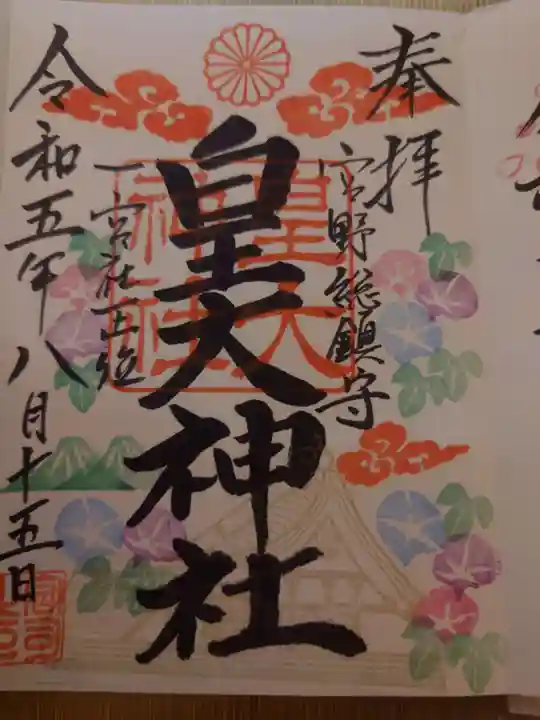 奉拝
宮野総鎮守
皇大神社
皇大神社
一宮社正跡
令和五年八月十五日